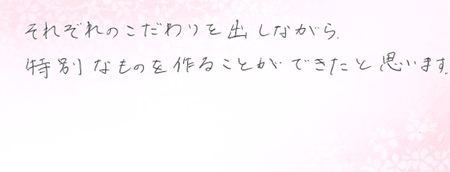 それぞれのこだわりを出しながら、
特別なものを作ることができたと思います。